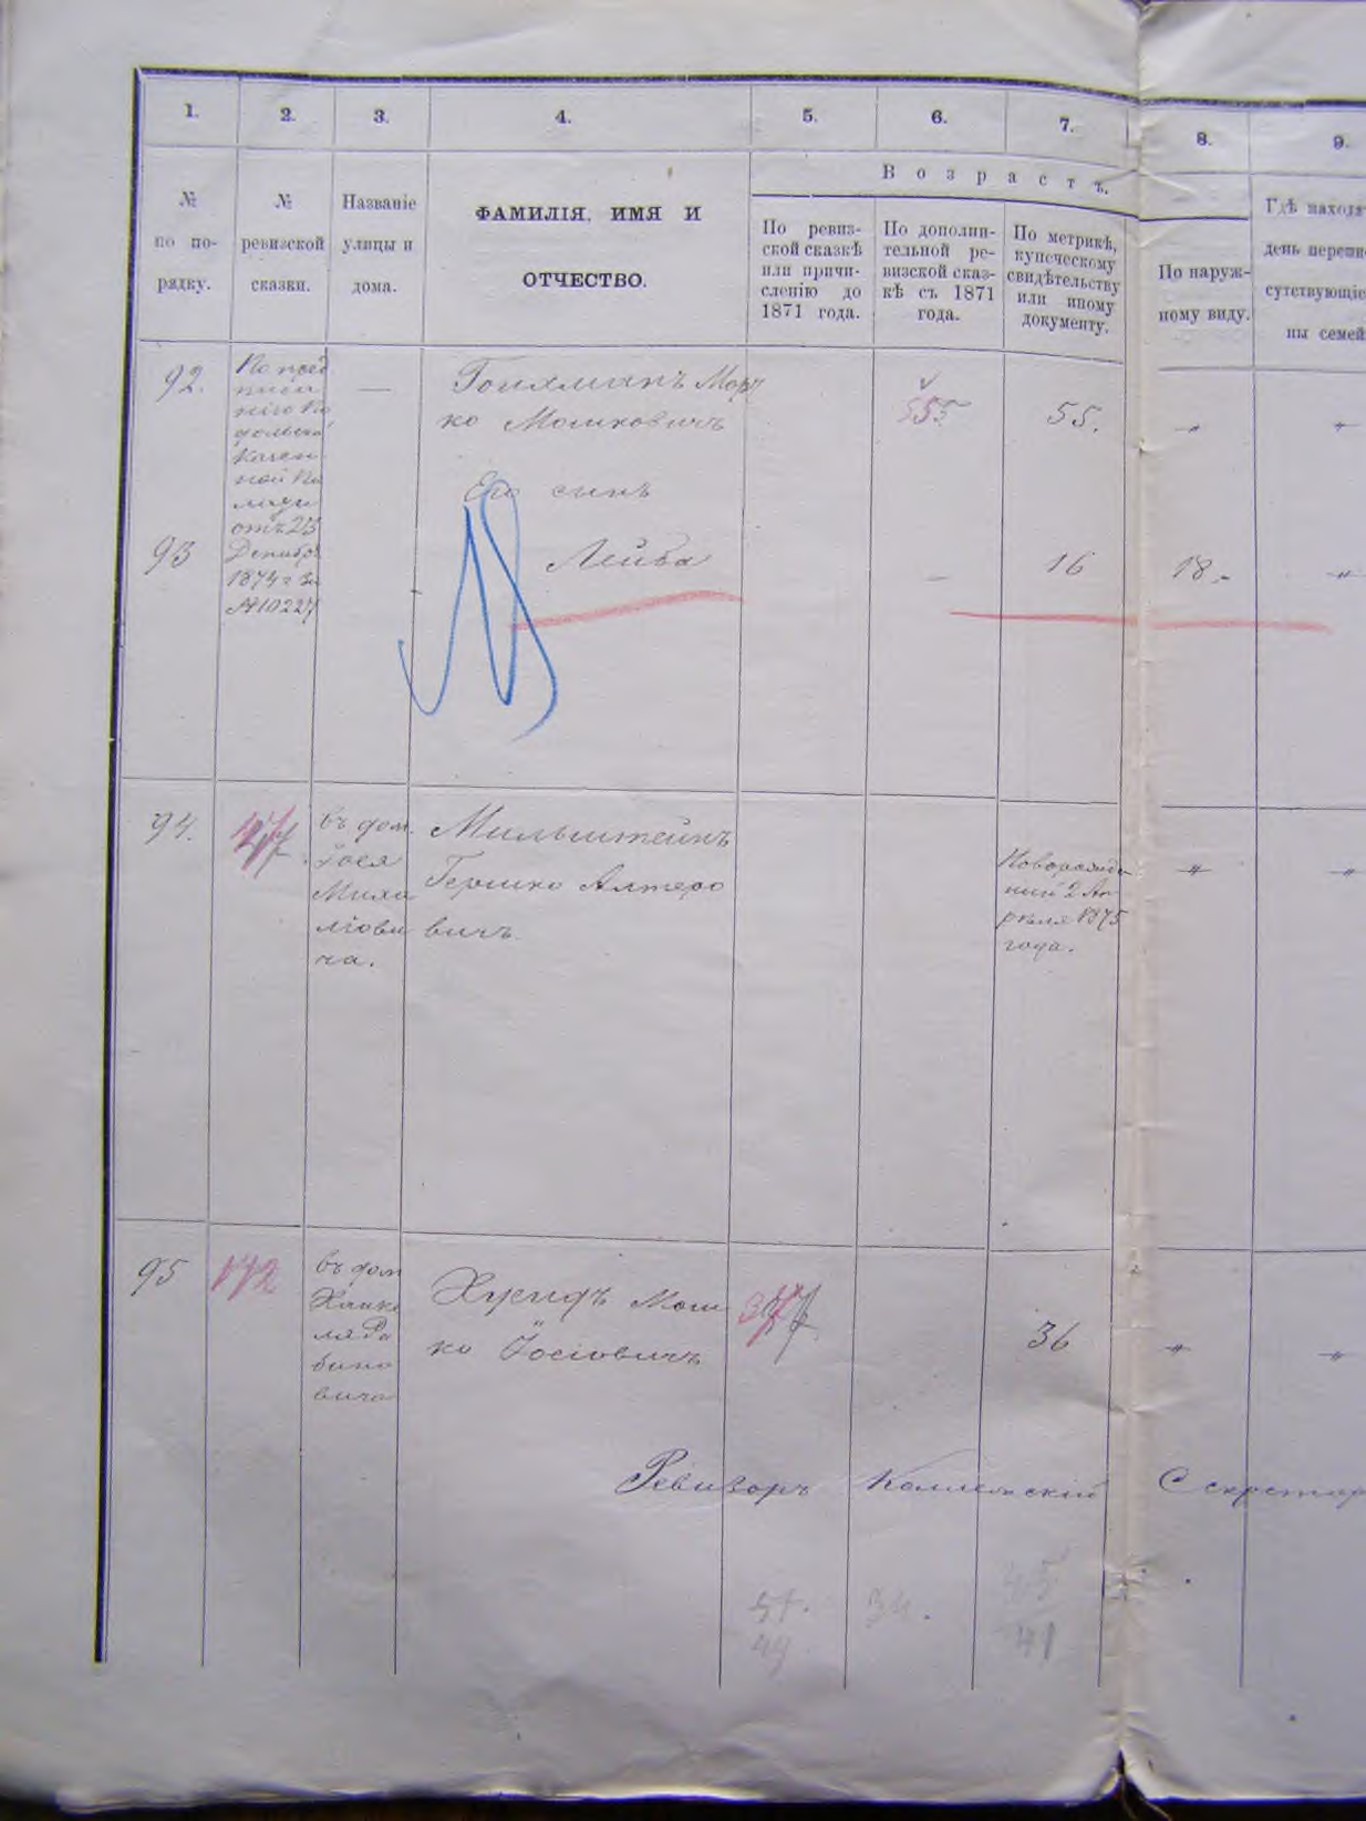 1. 2. 3. 4. 5. 6. 7. 8. 9.
Возрастъ.
№
по по-
рядку.
№
ревизской
сказки.
Названіе
улицы и
дома.
ФАМИЛІЯ, ИМЯ И
ОТЧЕСТВО.
По ревиз-
ской сказкѣ
или причи-
сленію до
1871 года.
По дополни-
тельной ре-
визской сказ-
кѣ съ 1871
года.
По метрикѣ,
купеческому
свидѣтельству
или иному
документу.
По наруж-
ному виду.
Гдѣ находя
день переписи
сутствующіе
ны семей
92.
По пред
писа
нію По
дольск
Казен
ной Па
латы
отъ 23
Декабр
1874 г за
№ 10227
—
Мор
ко Мошковичъ
55
55.
Его сынъ
93
Лейба
—
16
18.
94.
въ дом.
Іося
Миха
лови
ча.
Мильштейнъ
Гершко Алтеро
вичъ
Новорожд
ный 2 Ап
рѣля 1875
года.
95
172
въ дом
Хаике
ля Ра
бино
вича
Мош
ко Іосіовичъ
37
36
Ревизоръ
Секретар
34.
45
41
49